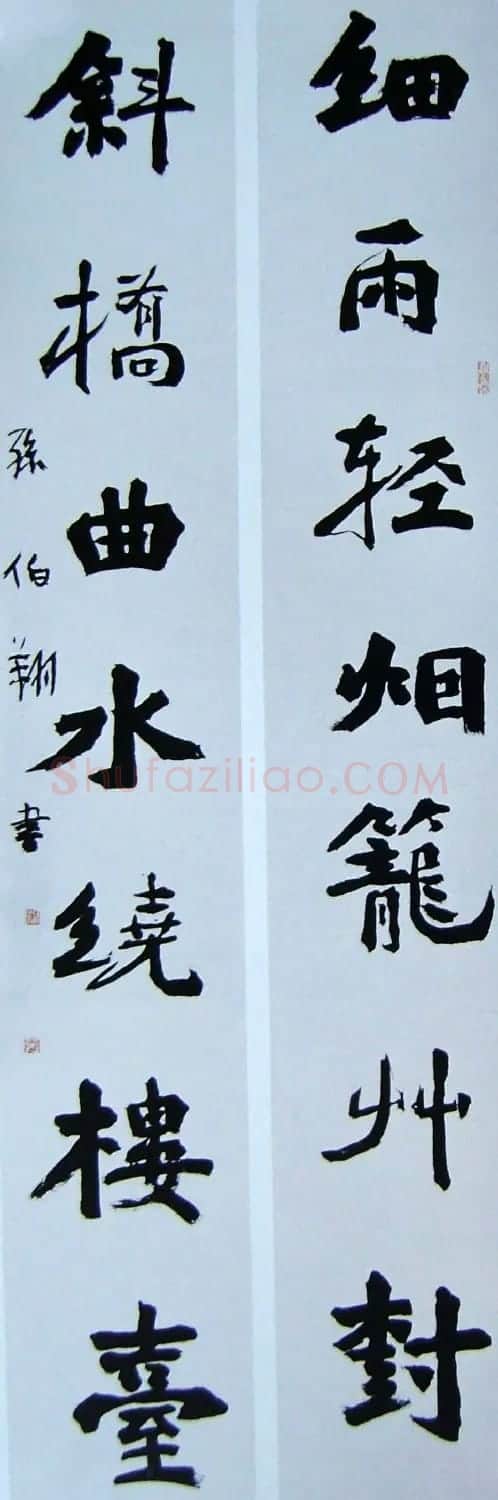 細雨轻烟籠艸樹
斜橋曲水繞樓臺
孫伯翔書
Shufaziliao.COM